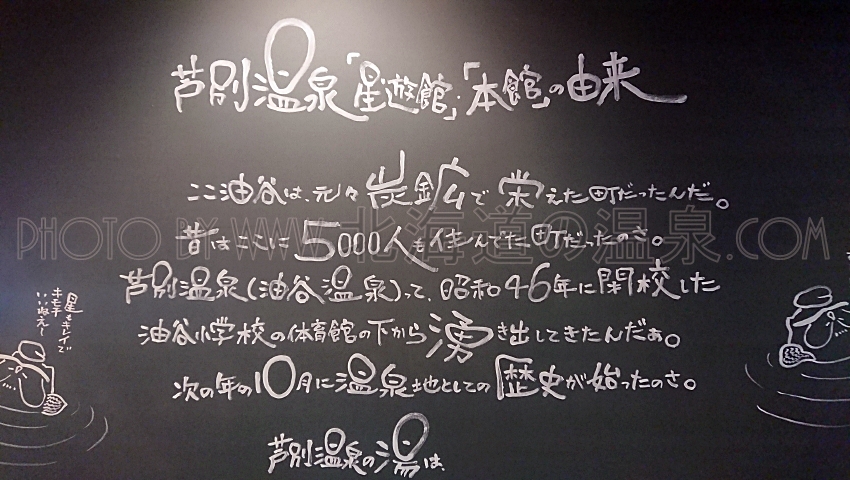 芦別温泉「星遊館」・「本館」の由来
ここ油谷は、元々炭鉱で栄えた町だったんだ。
昔はここに5000人も住んでた町だったのさ。
PHOTO BY WWW.北海道の温泉.COM
芦別温泉(油谷温泉)って、昭和46年に閉校した
油谷小学校の体育館の下から湧き出してきたんだぁ。
次の年の10月に温泉地としての歴史が始ったのさ。
芦別温泉の湯は、
星もキレイで
キモチ
いいねえ〜